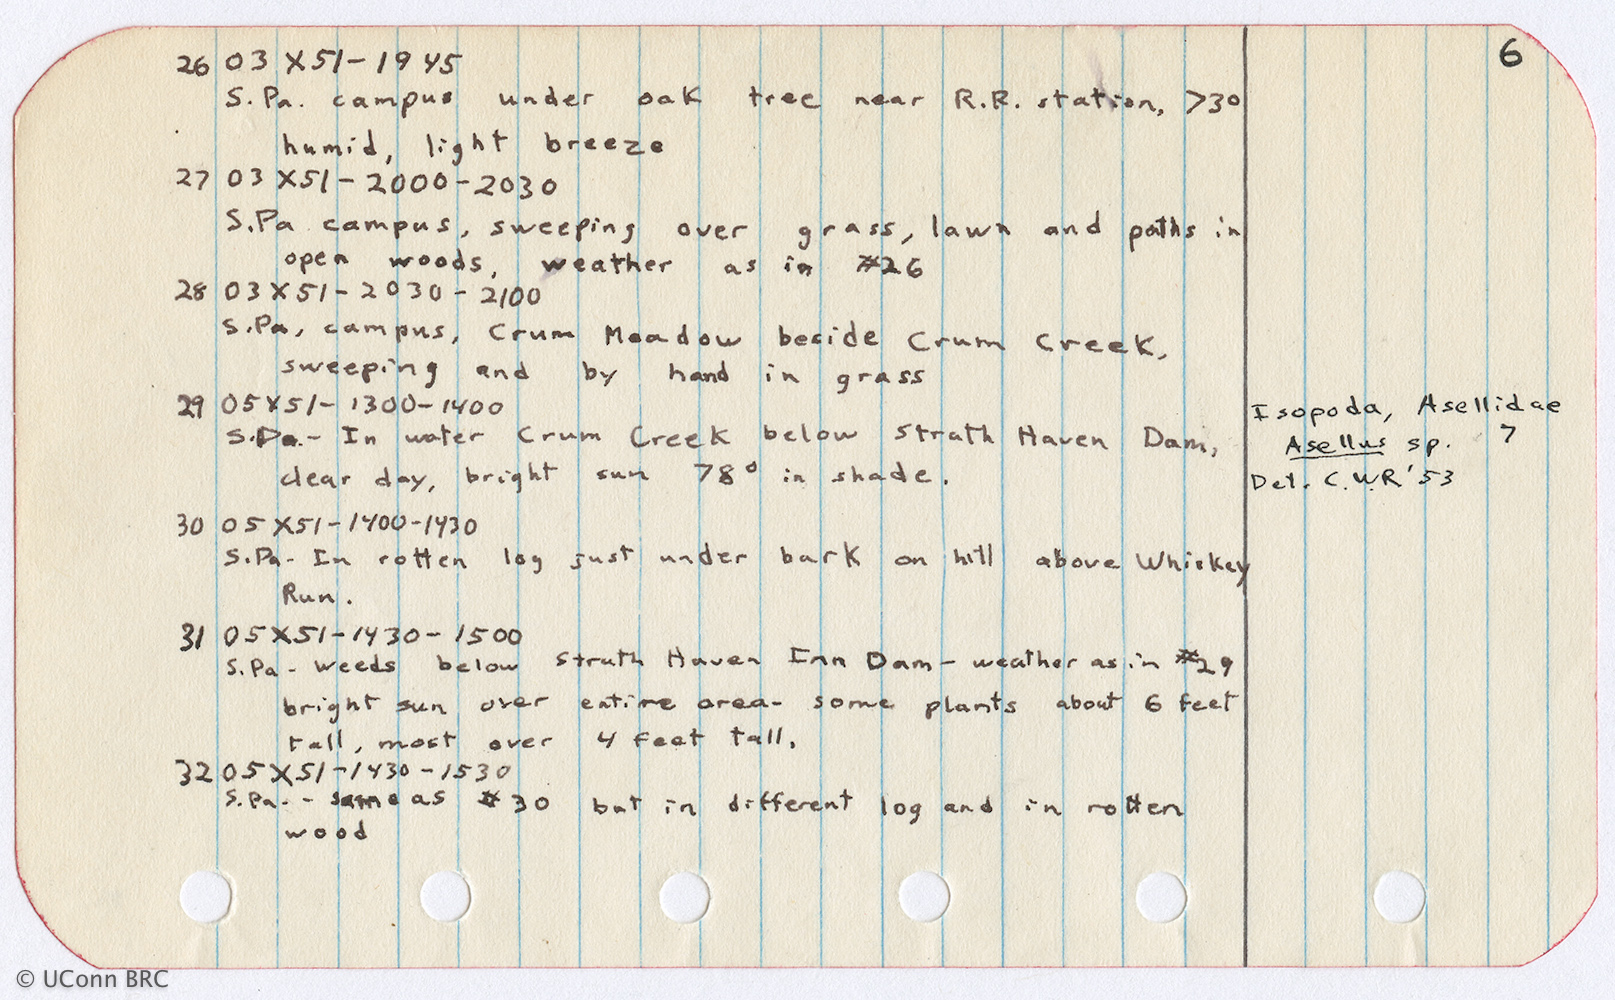 6
26 03 X51-1945
S.Pa. campus under oak tree near R.R. station, >30
humid, light breeze
27 03 X51-2000-2030
S.Pa campus, sweeping over grass, lawn and paths in
open woods, weather as in #26
28 03X51-2030-2100
S.Pa, campus, Crum Meadow beside Crum Creek,
sweeping and by hand in grass
29 05X51-1300-1400
S.Pa.- In water Crum Creek below Strath Haven Dam,
clear day, bright sun 78° in shade.
Isopoda, Asellidae
Asellus sp. 7
Det. C.W.R '53
30 05X51-1400-1430
S.Pa- In rotten log just under bark on hill above Whiskey
Run.
31 05X51-1430-1500
S.Pa- weeds below Strath Haven Inn Dam- weather as in #29
bright sun over entire area- some plants about 6 feet
tall, most over 4 feet tall.
32 05X51-1430-1530
S.Pa.- same as #30 but in different log and in rotten
wood
© UConn BRC